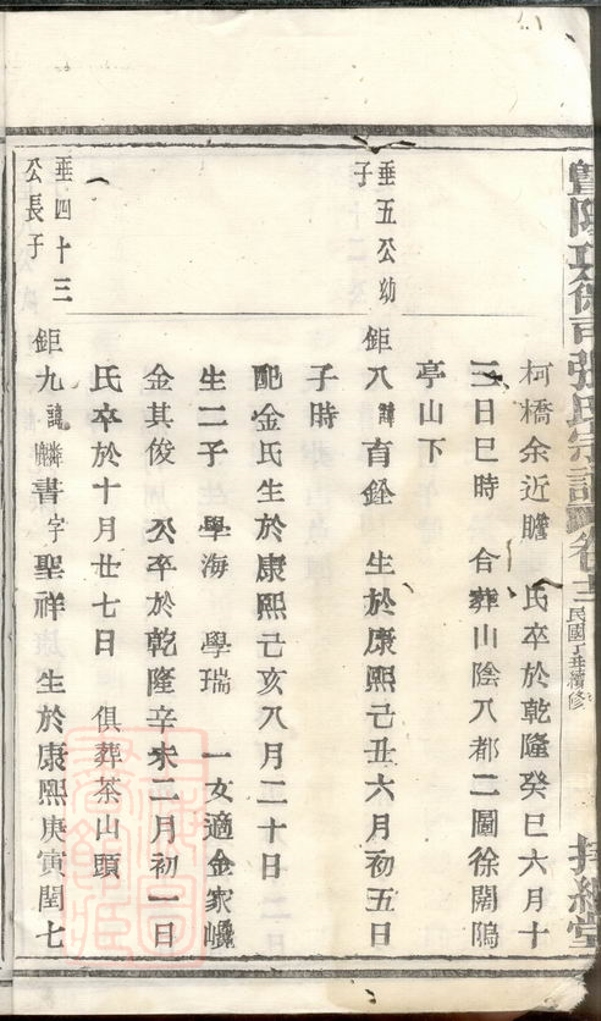 暨陽孝保司張氏宗譜 卷十二 民國丁丑續修 持經堂
柯橋余近贍 氏卒於乾隆癸巳六月十
三日巳時 合葬山陰八都二圖徐濶隖
亭山下
垂五公幼
子
鉅八 諱育銓 生於康熙己丑六月初五日
子時
配金氏生於康熙己亥八月二十日
生二子 學海 學瑞 一女適金家㠠
金其俊 公卒於乾隆辛未二月初一日
氏卒於十月廿七日 俱葬茶山頭
垂四十三
公長子
鉅九 諱麟書 字聖祥 生於康熙庚寅閏七